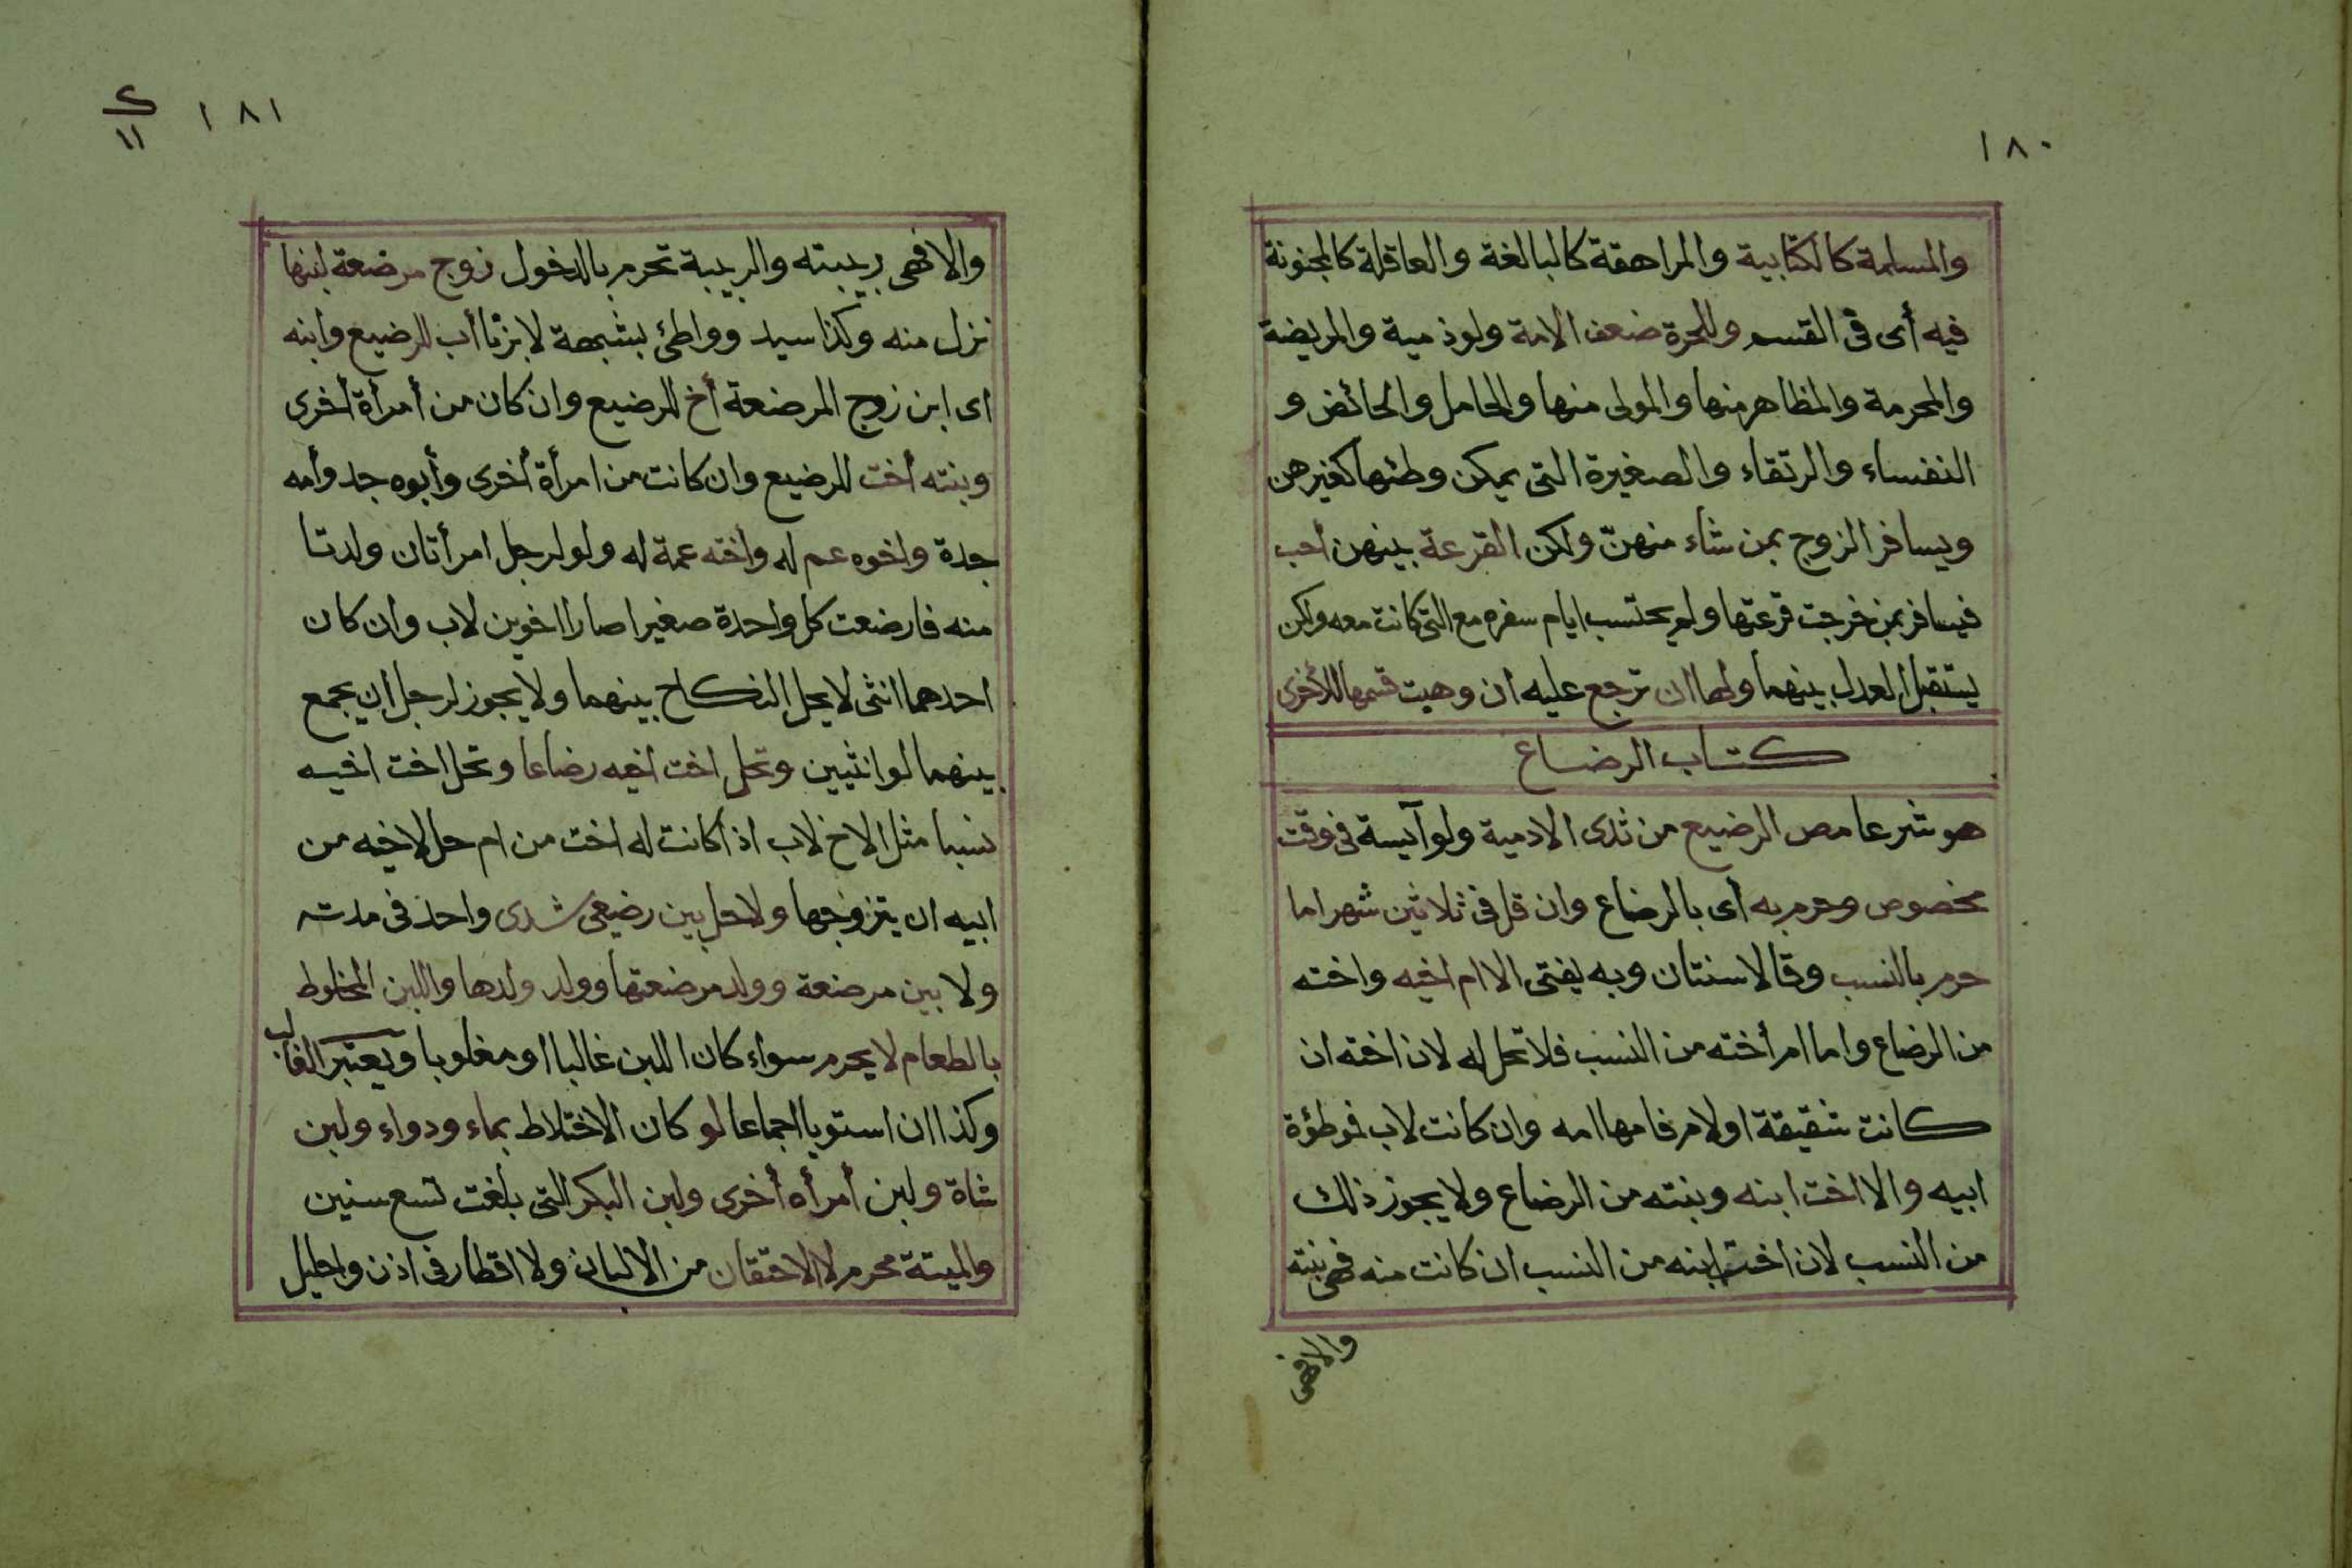 ١٨٠
والمسلمة كالكتابية والمراهقة كالبالغة والعاقلة كالمجنونة
فيه أى فى القسم وللحرة ضعف الامة ولو ذمية والمريضة
والمحرمة والمظاهر منها والمولى منها والحامل والحائض و
النفساء والرتقاء والصغيرة التى يمكن وطئها كغيرهن
ويسافر الزوج بمن شاء منهنّ ولكن القرعة بينهن أحب
فيسافر بمن خرجت قرعتها ولم يحتسب ايام سفره مع التى كانت معه ولكن
يستقبل العدل بينهما ولها ان ترجع عليه ان وهبت قسمها للأخرى
كتاب الرضاع
هو شرعا مص الرضيع من ثدى الادمية ولو آيسة فى وقت
مخصوص وحرم به أى بالرضاع وان قل فى ثلاثين شهرا ما
حرم بالنسب وقالا سنتان وبه يفتى الا ام اخيه واخته
من الرضاع واما ام أخته من النسب فلا تحل له لان اخته ان
كانت شقيقة او لام فامها امه وان كانت لاب فموطؤة
ابيه والا اخت ابنه وبنته من الرضاع ولا يجوز ذلك
من النسب لان اخت ابنه من النسب ان كانت منه فهى بنته
والا فهى
١٨١
٢
١١
والا فهى ربيبته والربيبة تحرم بالدخول زوج مرضعة لبنها
نزل منه وكذا سيد وواطئ بشبهة لا بزنا أب للرضيع وابنه
اى ابن زوج المرضعة أخ للرضيع وان كان من أمرأة أخرى
وبنته أخت للرضيع وان كانت من امرأة أخرى وأبوه جد وأمه
جدة واخوه عم له واخته عمة له ولو لرجل امرأتان ولدتا
منه فارضعت كل واحدة صغيرا صارا اخوين لاب وان كان
احدهما انثى لا يحل النكاح بينهما ولا يجوز لرجل ان يجمع
بينهما لو انثيين وتحل اخت أخيه رضاعا وتحل اخت اخيه
نسبا مثل الاخ لاب اذا كانت له اخت من ام حل لاخيه من
ابيه ان يتزوجها ولا حل بين رضيعى ثدى واحد فى مدته
ولا بين مرضعة وولد مرضعتها وولد ولدها واللبن المخلوط
بالطعام لا يحرم سواء كان اللبن غالبا او مغلوبا ويعتبر الغالب
وكذا ان استويا اجماعا لو كان الاختلاط بماء ودواء ولبن
شاة ولبن أمرأه أخرى ولبن البكر التى بلغت تسع سنين
والميتة محرم لا الاحتقان من الالبان ولا اقطار فى اذن واحليل